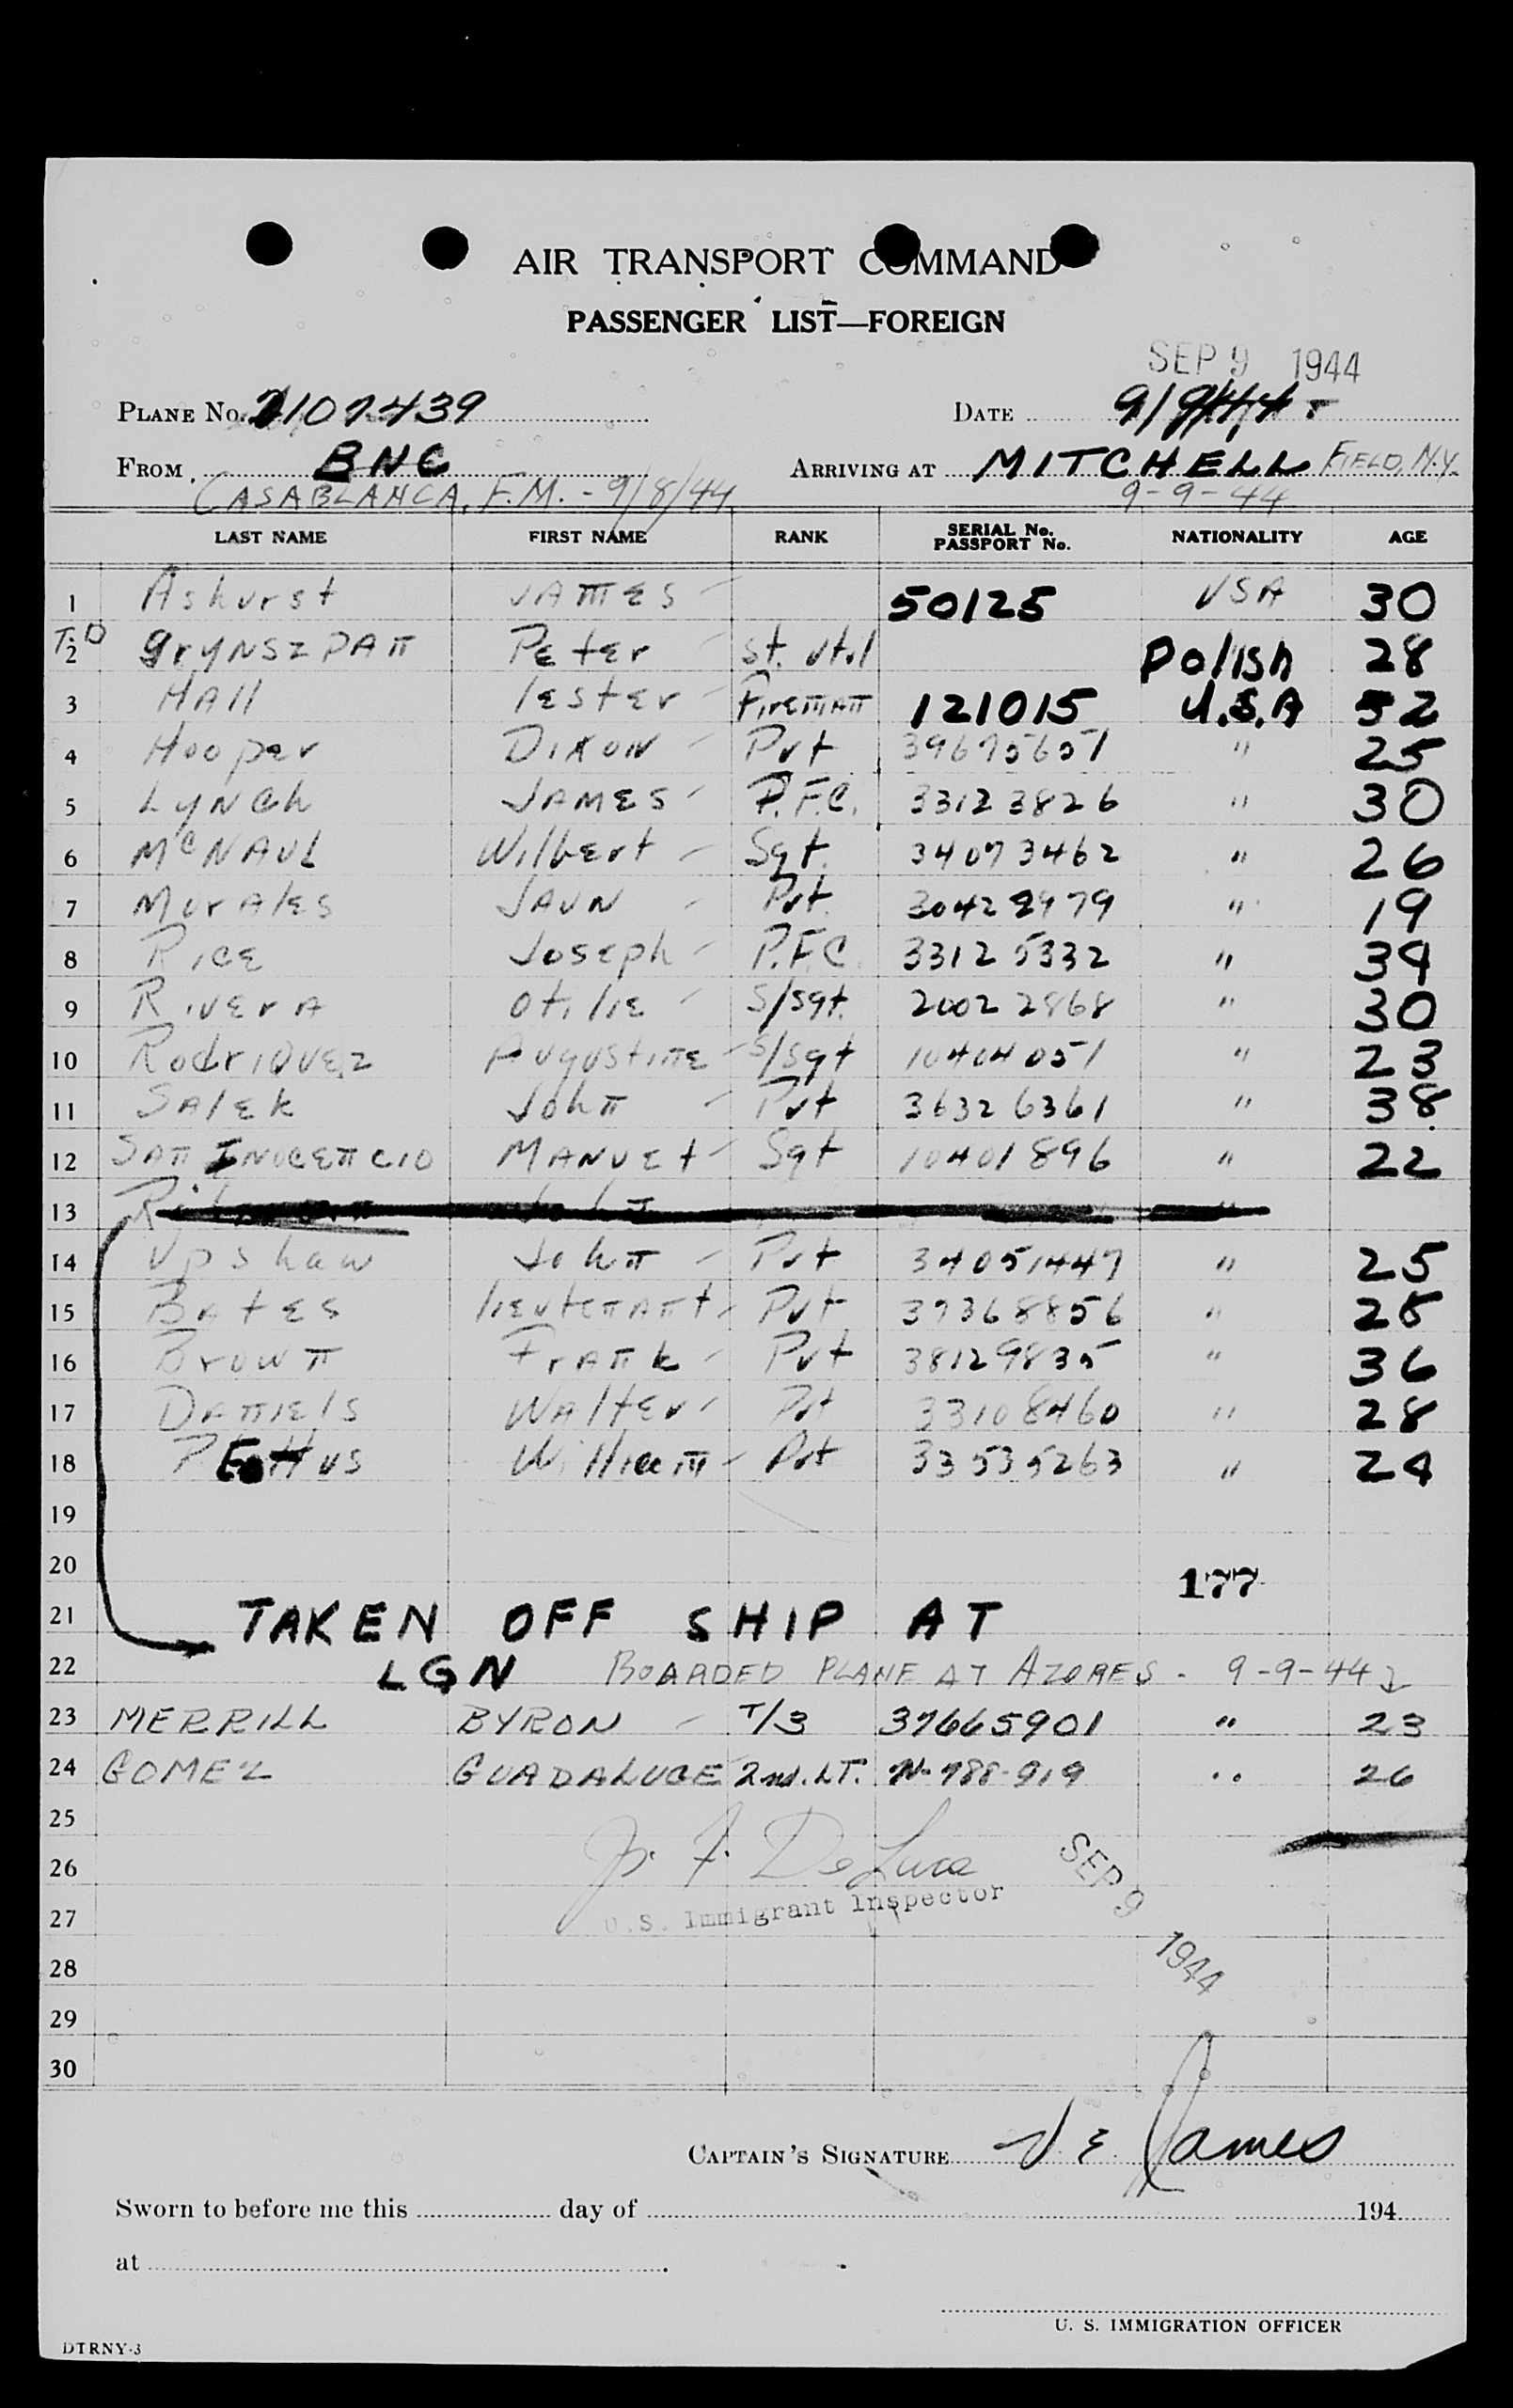 AIR TRANSPORT COMMAND
PASSENGER LIST—FOREIGN
SEP 9 1944
PLANE No. 2107439 DATE 9/9/44
FROM BNC ARRIVING AT MITCHELL FIELD, N.Y.
CASABLANCA, F.M. - 9/8/44 9-9-44
LAST NAME FIRST NAME RANK SERIAL No. PASSPORT No. NATIONALITY AGE
1 Ashurst JAMES 50125 USA 30
T.D 2 GrYNSZPAN PEter Polish 28
3 HAll lester FIREMAN 121015 U.S.A 52
4 Hooper DIXON Pvt 39675651 " 25
5 LYNCh JAMES P.F.C. 33123826 " 30
6 McNAUL WIlbert Sgt. 34073462 " 26
7 MorAlES JAUN Pvt. 30422979 " 19
8 RICE Joseph P.F.C. 33125332 " 34
9 RIVErA Otilie S/Sgt. 20022868 " 30
10 RodrIQUEz AUgUSTINE S/Sgt 10404051 " 23
11 SAlEk John Pvt 36326361 " 38
12 SAN INOCENCIO MANUEt Sgt 10401896 " 22
13 "
14 Upshaw John Pvt 34051447 " 25
15 BAtES lieutENANt Pvt 37368856 " 28
16 Brown FrANk Pvt 38129835 " 36
17 DANIElS WAlter Pvt 33108460 " 28
18 PEttus William Pvt 33535263 " 24
19
20
177
21 TAKEN OFF SHIP AT
22 LGN BOARDED PLANE AT AZORES - 9-9-44
23 MERRILL BYRON T/3 37665901 " 23
24 GOMEZ GUADALUCE 2nd. LT. N-788-919 " 26
25
26 J. F. DeLuca SEP 9 1944
27 U.S. Immigrant Inspector
28
29
30
CAPTAIN'S SIGNATURE V E James
Sworn to before me this day of 194
at
U. S. IMMIGRATION OFFICER
DTRNY-3